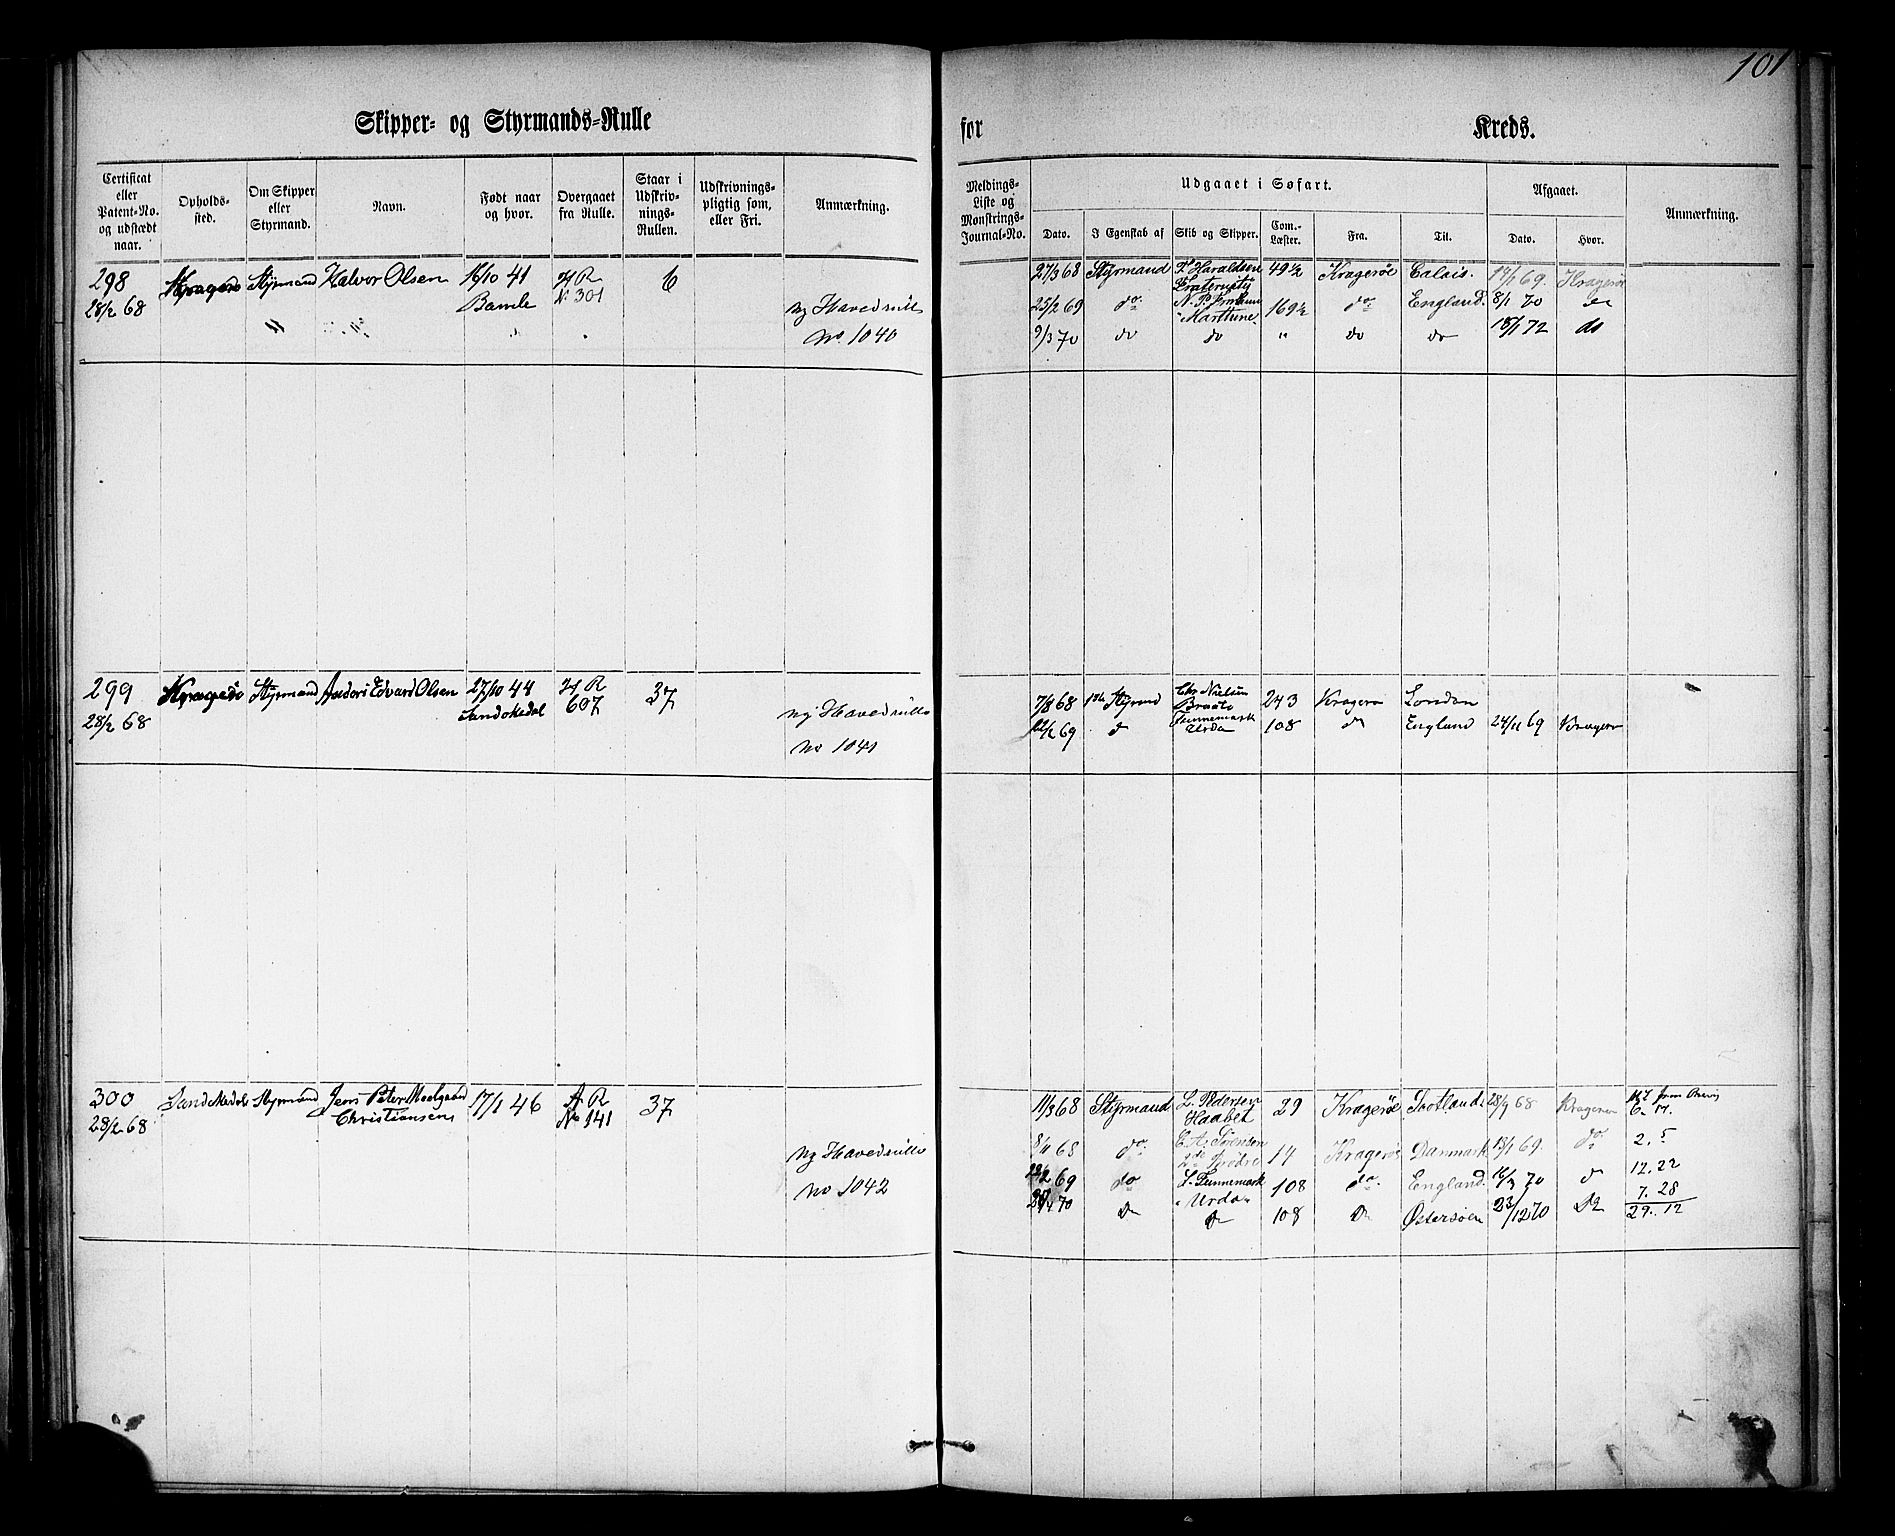 101
Skipper- og Styrmands-Rulle
for Kreds.
Certificat eller Patent-No. og udstædt naar.
Opholds-sted.
Om Skipper eller Styrmand.
Navn.
Født naar og hvor.
Overgaaet fra Rulle.
Staar i Udskriv-nings-Rullen.
Udskrivnings-pligtig som, eller Fri.
Anmærkning.
Meldings-Liste og Mønstrings-Journal-No.
Udgaaet i Søfart.
Dato.
I Egenskab af
Skib og Skipper.
Com.-Læster.
Fra.
Til.
Afgaaet.
Dato.
Hvor.
Anmærkning.
298 Kragerø Styrmand Halvor Olsen 16/10 41 H R 6
28/2 68 Bamle No 301
ny Hovedrulle
No. 1040
27/3 68 Styrmand Haraldsen 49½ Kragerøe Calais. 69. Kragerø
Fraternity
25/2 69 do N. P. 169½ do England. 8/1 70
9/3 70 do do " do do 18/1 72 do
299 Kragerø Styrmand Edvard Olsen 27/10 44 H R 37
28/2 68 Sandøkedal 607
ny Hovedrulle
No 1041
7/8 68 Chr Nielsen 243 Kragerø London
69 do Tennemark 108 do England 24/11 69 Kragerø
Urda
300 Sandøkedal Styrmand Jens Peter 17/1 46 A R 37
28/2 68 Christiansen No 141
ny Hovedrulle
No 1042
11/3 68 Styrmand L. Pedersen 29 Kragerøe Skotland 28/9 68 Kragerø
Haabet
8/11 68 do. C. A. Sørensen 14 Kragerøe Danmark 18/1 69. do. 2. 5
Brødre
22/2 69 do L. Tennemark 108 do. England. 70 do 12. 22
"Urda"
70 do do 108 do Østersøen 23/12 70 do 7. 28
29. 12